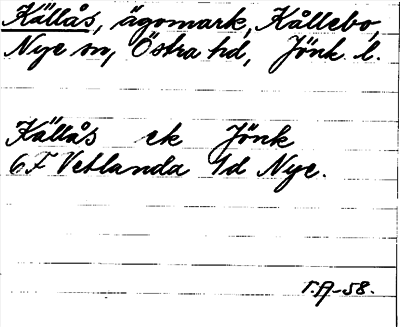 Källås, ägomark, Kållebo,
Nye sn, Östra hd, Jönk. l.
Källås ek Jönk
6F Vetlanda 1d Nye.
T.A-58.